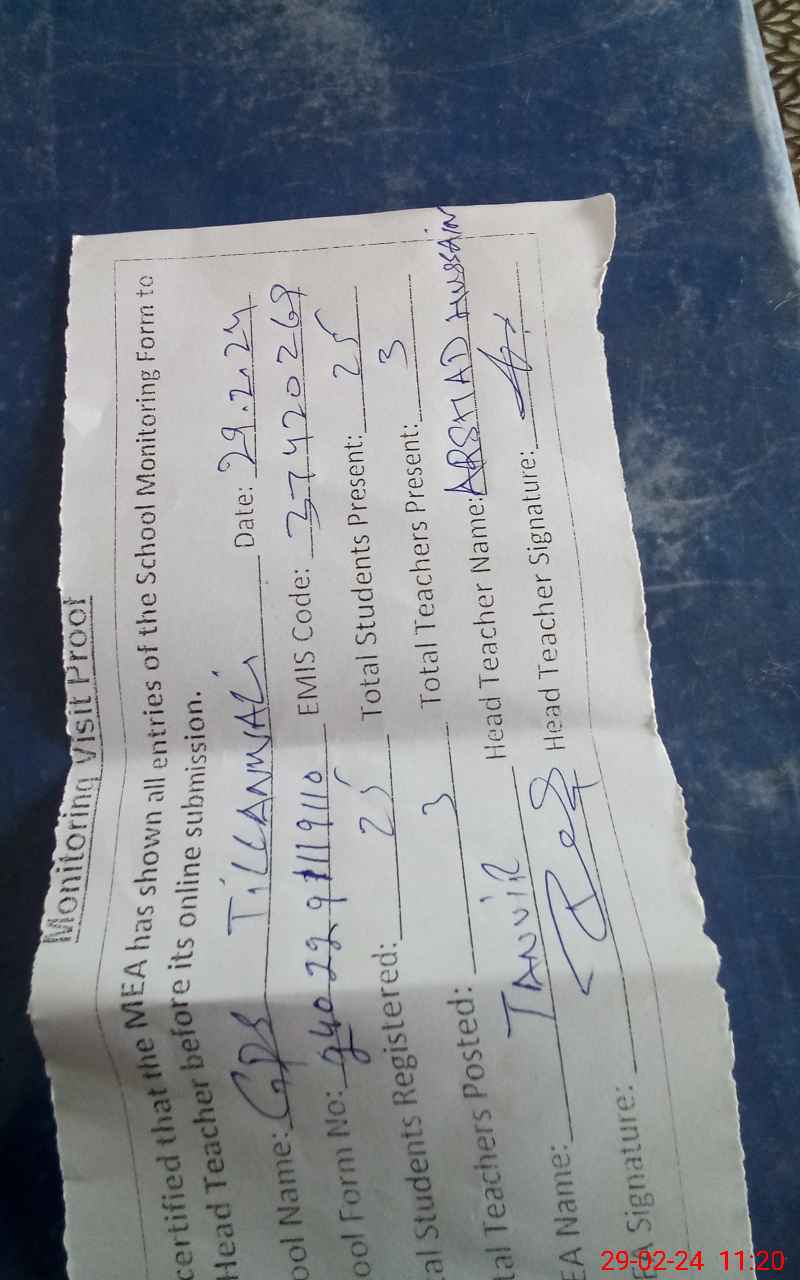 Monitoring Visit Proof
certified that the MEA has shown all entries of the School Monitoring Form to
Head Teacher before its online submission.
ool Name: GPS Tillanwali Date: 29.2.24
ool Form No: EMIS Code: 37420269
al Students Registered: 25 Total Students Present: 25
tal Teachers Posted: 3 Total Teachers Present: 3
EA Name: TANVIR Head Teacher Name: ARSHAD HUSSAIN
EA Signature: Head Teacher Signature:
29-02-24 11:20